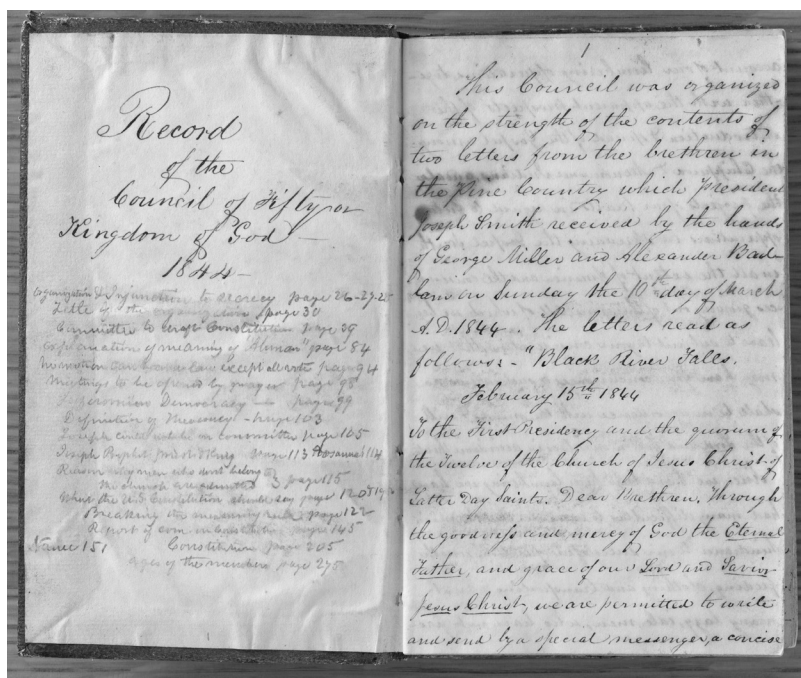 Record
of the
Council of Fifty or
Kingdom of God
1844 -
Organization & Injunction to secrecy page 26-27-25
Title of the organization page 30
Committee to draft Constitution page 39
Explanation of meaning of "Ahman" page 84
law except all vote page 94
Meetings to be opened by prayer page 98
Democracy - page 99
Definition of Theocracy - page 103
Joseph committee page 105
Joseph Prophet Priest & King page 113 Hosannah 114
Reason why men who don't belong to
the church are admitted 3 page 115
What the U.S. Constitution should say page
Breaking page 122
Report of com. on Constitution page 145
Name 151 Constitution page 205
Ages of the members page 275
1
This Council was organized
on the strength of the contents of
two letters from the brethren in
the Pine Country which President
Joseph Smith received by the hands
of George Miller and Alexander Bad-
lam on Sunday the 10th day of March
A.D. 1844. The letters read as
follows: - "Black River Falls.
February 15th 1844
To the First Presidency and the quorum of
the Twelve of the Church of Jesus Christ of
Latter Day Saints. Dear Brethren. Through
the goodness and mercy of God the Eternal
Father, and grace of our Lord and Savior
Jesus Christ, we are permitted to write
and send by a special messenger, a concise